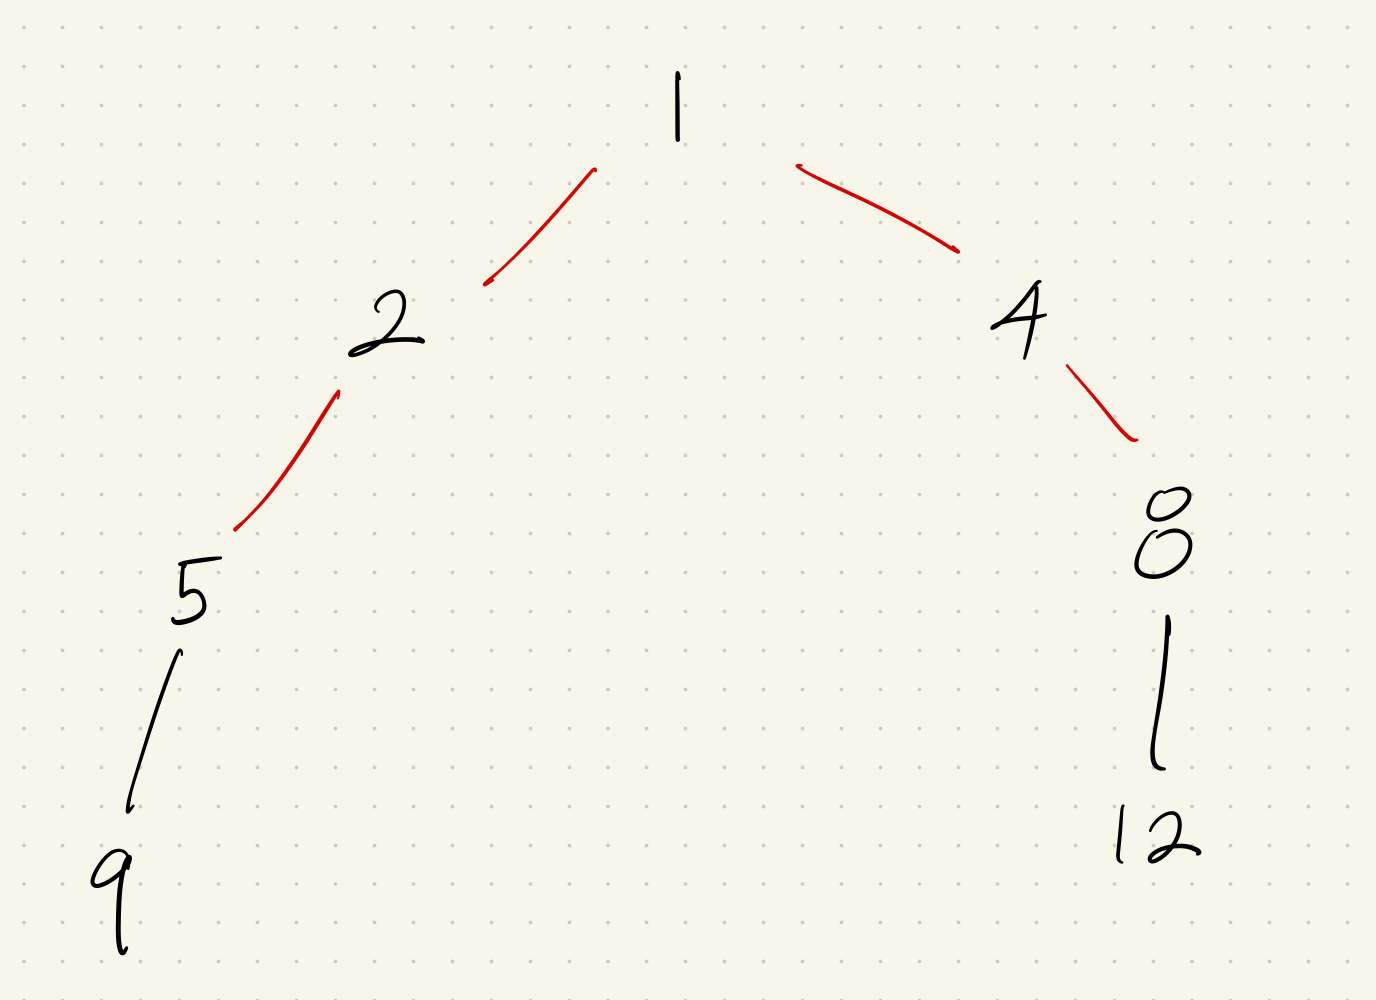 1
2 4
5 8
9 12